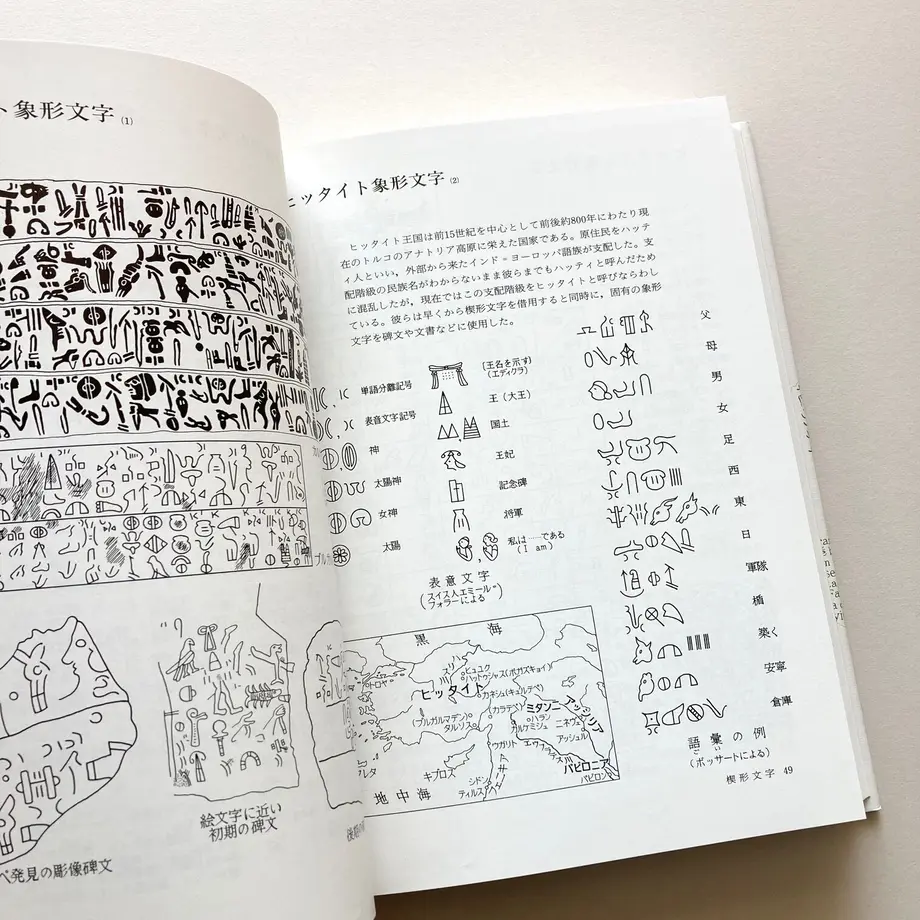 ト象形文字 (1)
絵文字に近い
初期の碑文
発見の彫像碑文
ヒッタイト象形文字 (2)
ヒッタイト王国は前15世紀を中心として前後約800年にわたり現
在のトルコのアナトリア高原に栄えた国家である。原住民をハッテ
ィ人といい，外部から来たインド＝ヨーロッパ語族が支配した。支
配階級の民族名がわからないまま彼らまでもハッティと呼んだため
に混乱したが，現在ではこの支配階級をヒッタイトと呼びならわし
ている。彼らは早くから楔形文字を借用すると同時に，固有の象形
文字を碑文や文書などに使用した。
単語分離記号
表音文字記号
神
太陽神
女神
太陽
(王名を示す)
(エディクラ)
王（大王）
国土
王妃
記念碑
将軍
私は……である
(I am)
表意文字
(スイス人エミール＝
フォラーによる)
父
母
男
女
足
西
東
日
軍隊
橋
築く
安寧
倉庫
語彙の例
ごい
(ボッサートによる)
黒海
トロヤ
ビュユク
ハットゥシャス(ボガズキョイ)
ヒッタイト
カネシュ(キュルテペ)
(カラテペ)
ミタンニ
(ブルガルマデン)
タルソス
ハラン
カルケミシュ
ニネヴェ
アッシリア
アッシュル
ウガリト
キプロス
シドン
ティルス
バビロニア
バビロン
地中海
楔形文字 49